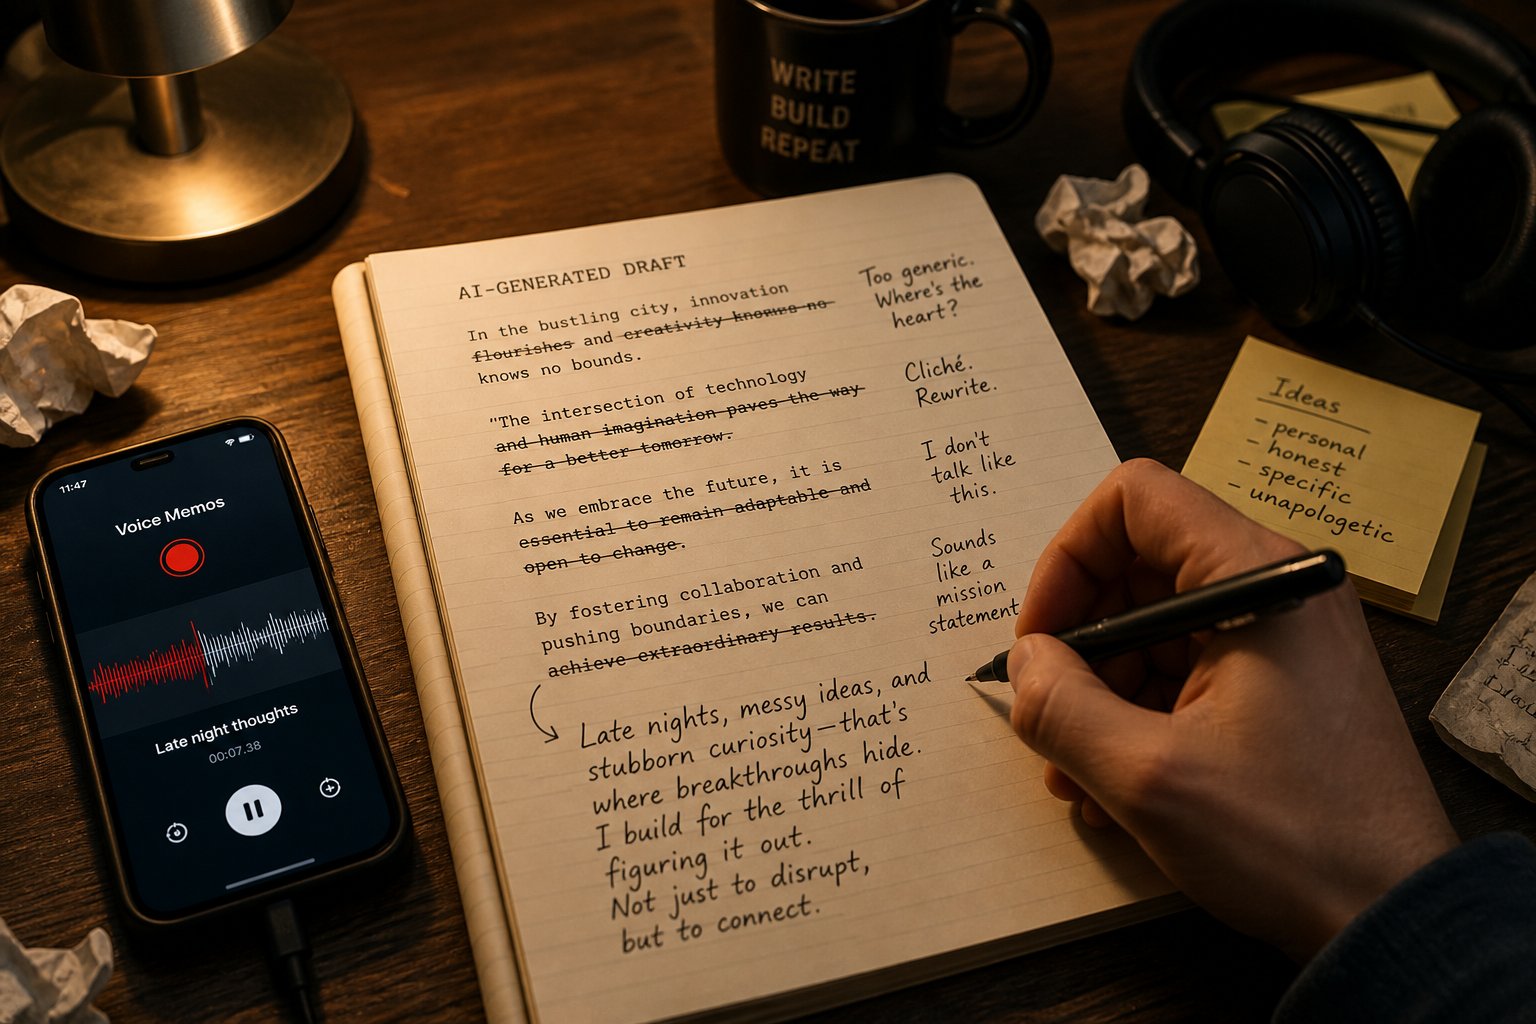 WRITE
BUILD
REPEAT
AI-GENERATED DRAFT
In the bustling city, innovation
flourishes and creativity knows no
knows no bounds.
"The intersection of technology
and human imagination paves the way
for a better tomorrow.
As we embrace the future, it is
essential to remain adaptable and
open to change.
By fostering collaboration and
pushing boundaries, we can
achieve extraordinary results.
Too generic.
Where's the
heart?
Cliché.
Rewrite.
I don't
talk like
this.
Sounds
like a
mission
statement
Late nights, messy ideas, and
stubborn curiosity—that's
where breakthroughs hide.
I build for the thrill of
figuring it out.
Not just to disrupt,
but to connect.
Ideas
- personal
- honest
- specific
- unapologetic
11:47
Voice Memos
Late night thoughts
00:07.38